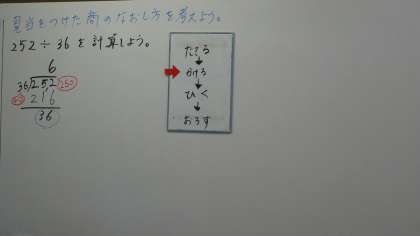 見当をつけた商のなおし方を考えよう。
252÷36を計算しよう。
6
36)252 250
216
36
たてる
かける
ひく
おろす